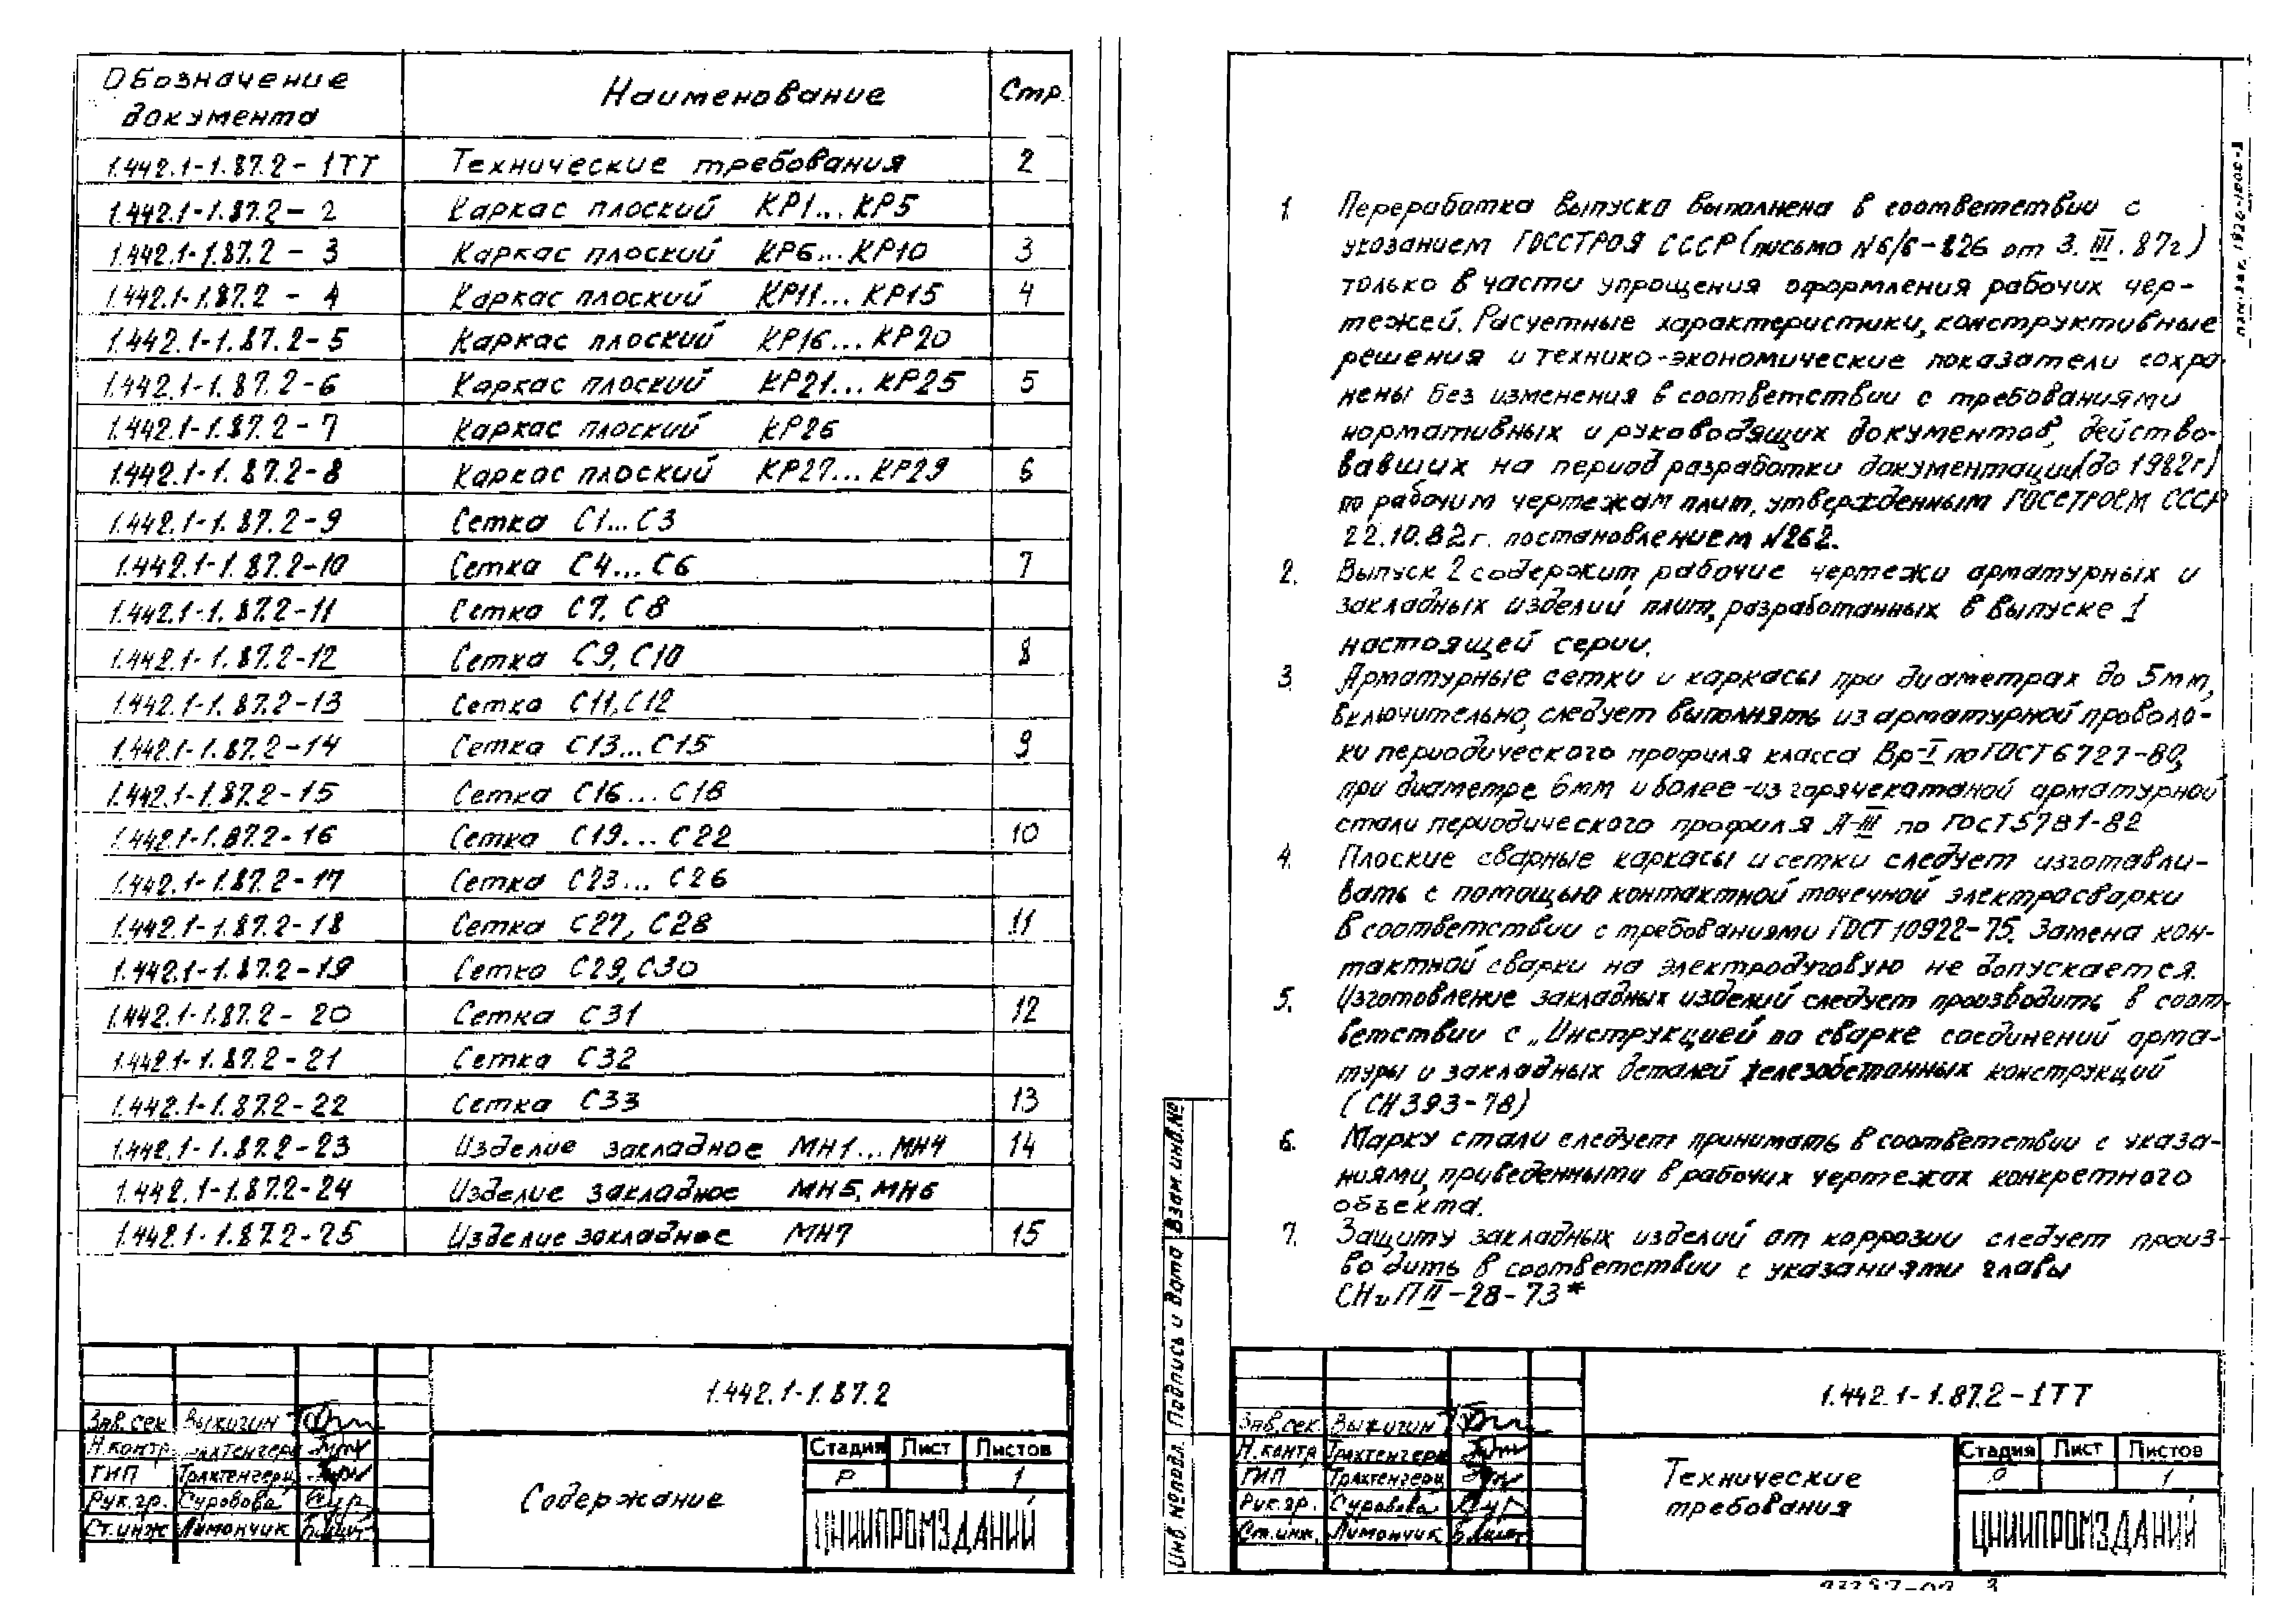 Обозначение документа Наименование Стр.
1.442.1-1.87.2-1ТТ Технические требования 2
1.442.1-1.87.2-2 Каркас плоский КР1...КР5
1.442.1-1.87.2-3 Каркас плоский КР6...КР10 3
1.442.1-1.87.2-4 Каркас плоский КР11...КР15 4
1.442.1-1.87.2-5 Каркас плоский КР16...КР20
1.442.1-1.87.2-6 Каркас плоский КР21...КР25 5
1.442.1-1.87.2-7 Каркас плоский КР26
1.442.1-1.87.2-8 Каркас плоский КР27...КР29 6
1.442.1-1.87.2-9 Сетка С1...С3
1.442.1-1.87.2-10 Сетка С4...С6 7
1.442.1-1.87.2-11 Сетка С7, С8
1.442.1-1.87.2-12 Сетка С9, С10 8
1.442.1-1.87.2-13 Сетка С11, С12
1.442.1-1.87.2-14 Сетка С13...С15 9
1.442.1-1.87.2-15 Сетка С16...С18
1.442.1-1.87.2-16 Сетка С19...С22 10
1.442.1-1.87.2-17 Сетка С23...С26
1.442.1-1.87.2-18 Сетка С27, С28 11
1.442.1-1.87.2-19 Сетка С29, С30
1.442.1-1.87.2-20 Сетка С31 12
1.442.1-1.87.2-21 Сетка С32
1.442.1-1.87.2-22 Сетка С33 13
1.442.1-1.87.2-23 Изделие закладное МН1...МН4 14
1.442.1-1.87.2-24 Изделие закладное МН5, МН6
1.442.1-1.87.2-25 Изделие закладное МН7 15
1.442.1-1.87.2
Зав.сек. Выжигин
Н.контр. Трахтенгерц
ГИП Трахтенгерц
Рук.гр. Суровова
Ст.инж Лимончик
Содержание
Стадия Лист Листов
Р 1
ЦНИИПРОМЗДАНИЙ
1. Переработка выпуска выполнена в соответствии с
указанием ГОССТРОЯ СССР (письмо №6/6-826 от 3.III.87г)
только в части упрощения оформления рабочих чер-
тежей. Расчетные характеристики, конструктивные
решения и технико-экономические показатели сохра-
нены без изменения в соответствии с требованиями
нормативных и руководящих документов, действо-
вавших на период разработки документации (до 1982г)
по рабочим чертежам плит, утвержденным ГОССТРОЕМ СССР
22.10.82г. постановлением №262.
2. Выпуск 2 содержит рабочие чертежи арматурных и
закладных изделий плит, разработанных в выпуске 1
настоящей серии.
3. Арматурные сетки и каркасы при диаметрах до 5мм,
включительно, следует выполнять из арматурной проволо-
ки периодического профиля класса Вр-I по ГОСТ 6727-80,
при диаметре 6мм и более-из горячекатаной арматурной
стали периодического профиля А-III по ГОСТ 5781-82
4. Плоские сварные каркасы и сетки следует изготавли-
вать с помощью контактной точечной электросварки
в соответствии с требованиями ГОСТ 10922-75. Замена кон-
тактной сварки на электродуговую не допускается.
5. Изготовление закладных изделий следует производить в соот-
ветствии с „Инструкцией по сварке соединений арма-
туры и закладных деталей железобетонных конструкций
(СН 393-78)
6. Марку стали следует принимать в соответствии с указа-
ниями, приведенными в рабочих чертежах конкретного
объекта.
7. Защиту закладных изделий от коррозии следует произ-
водить в соответствии с указаниями главы
СНиП II-28-73*
Инв. № подл. Подпись и дата Взам. инв. №
1.442.1-1.87.2-1ТТ
Зав.сек. Выжигин
Н.контр Трахтенгерц
ГИП Трахтенгерц
Рук.гр. Суровова
Ст.инж. Лимончик
Технические
требования
Стадия Лист Листов
Р 1
ЦНИИПРОМЗДАНИЙ